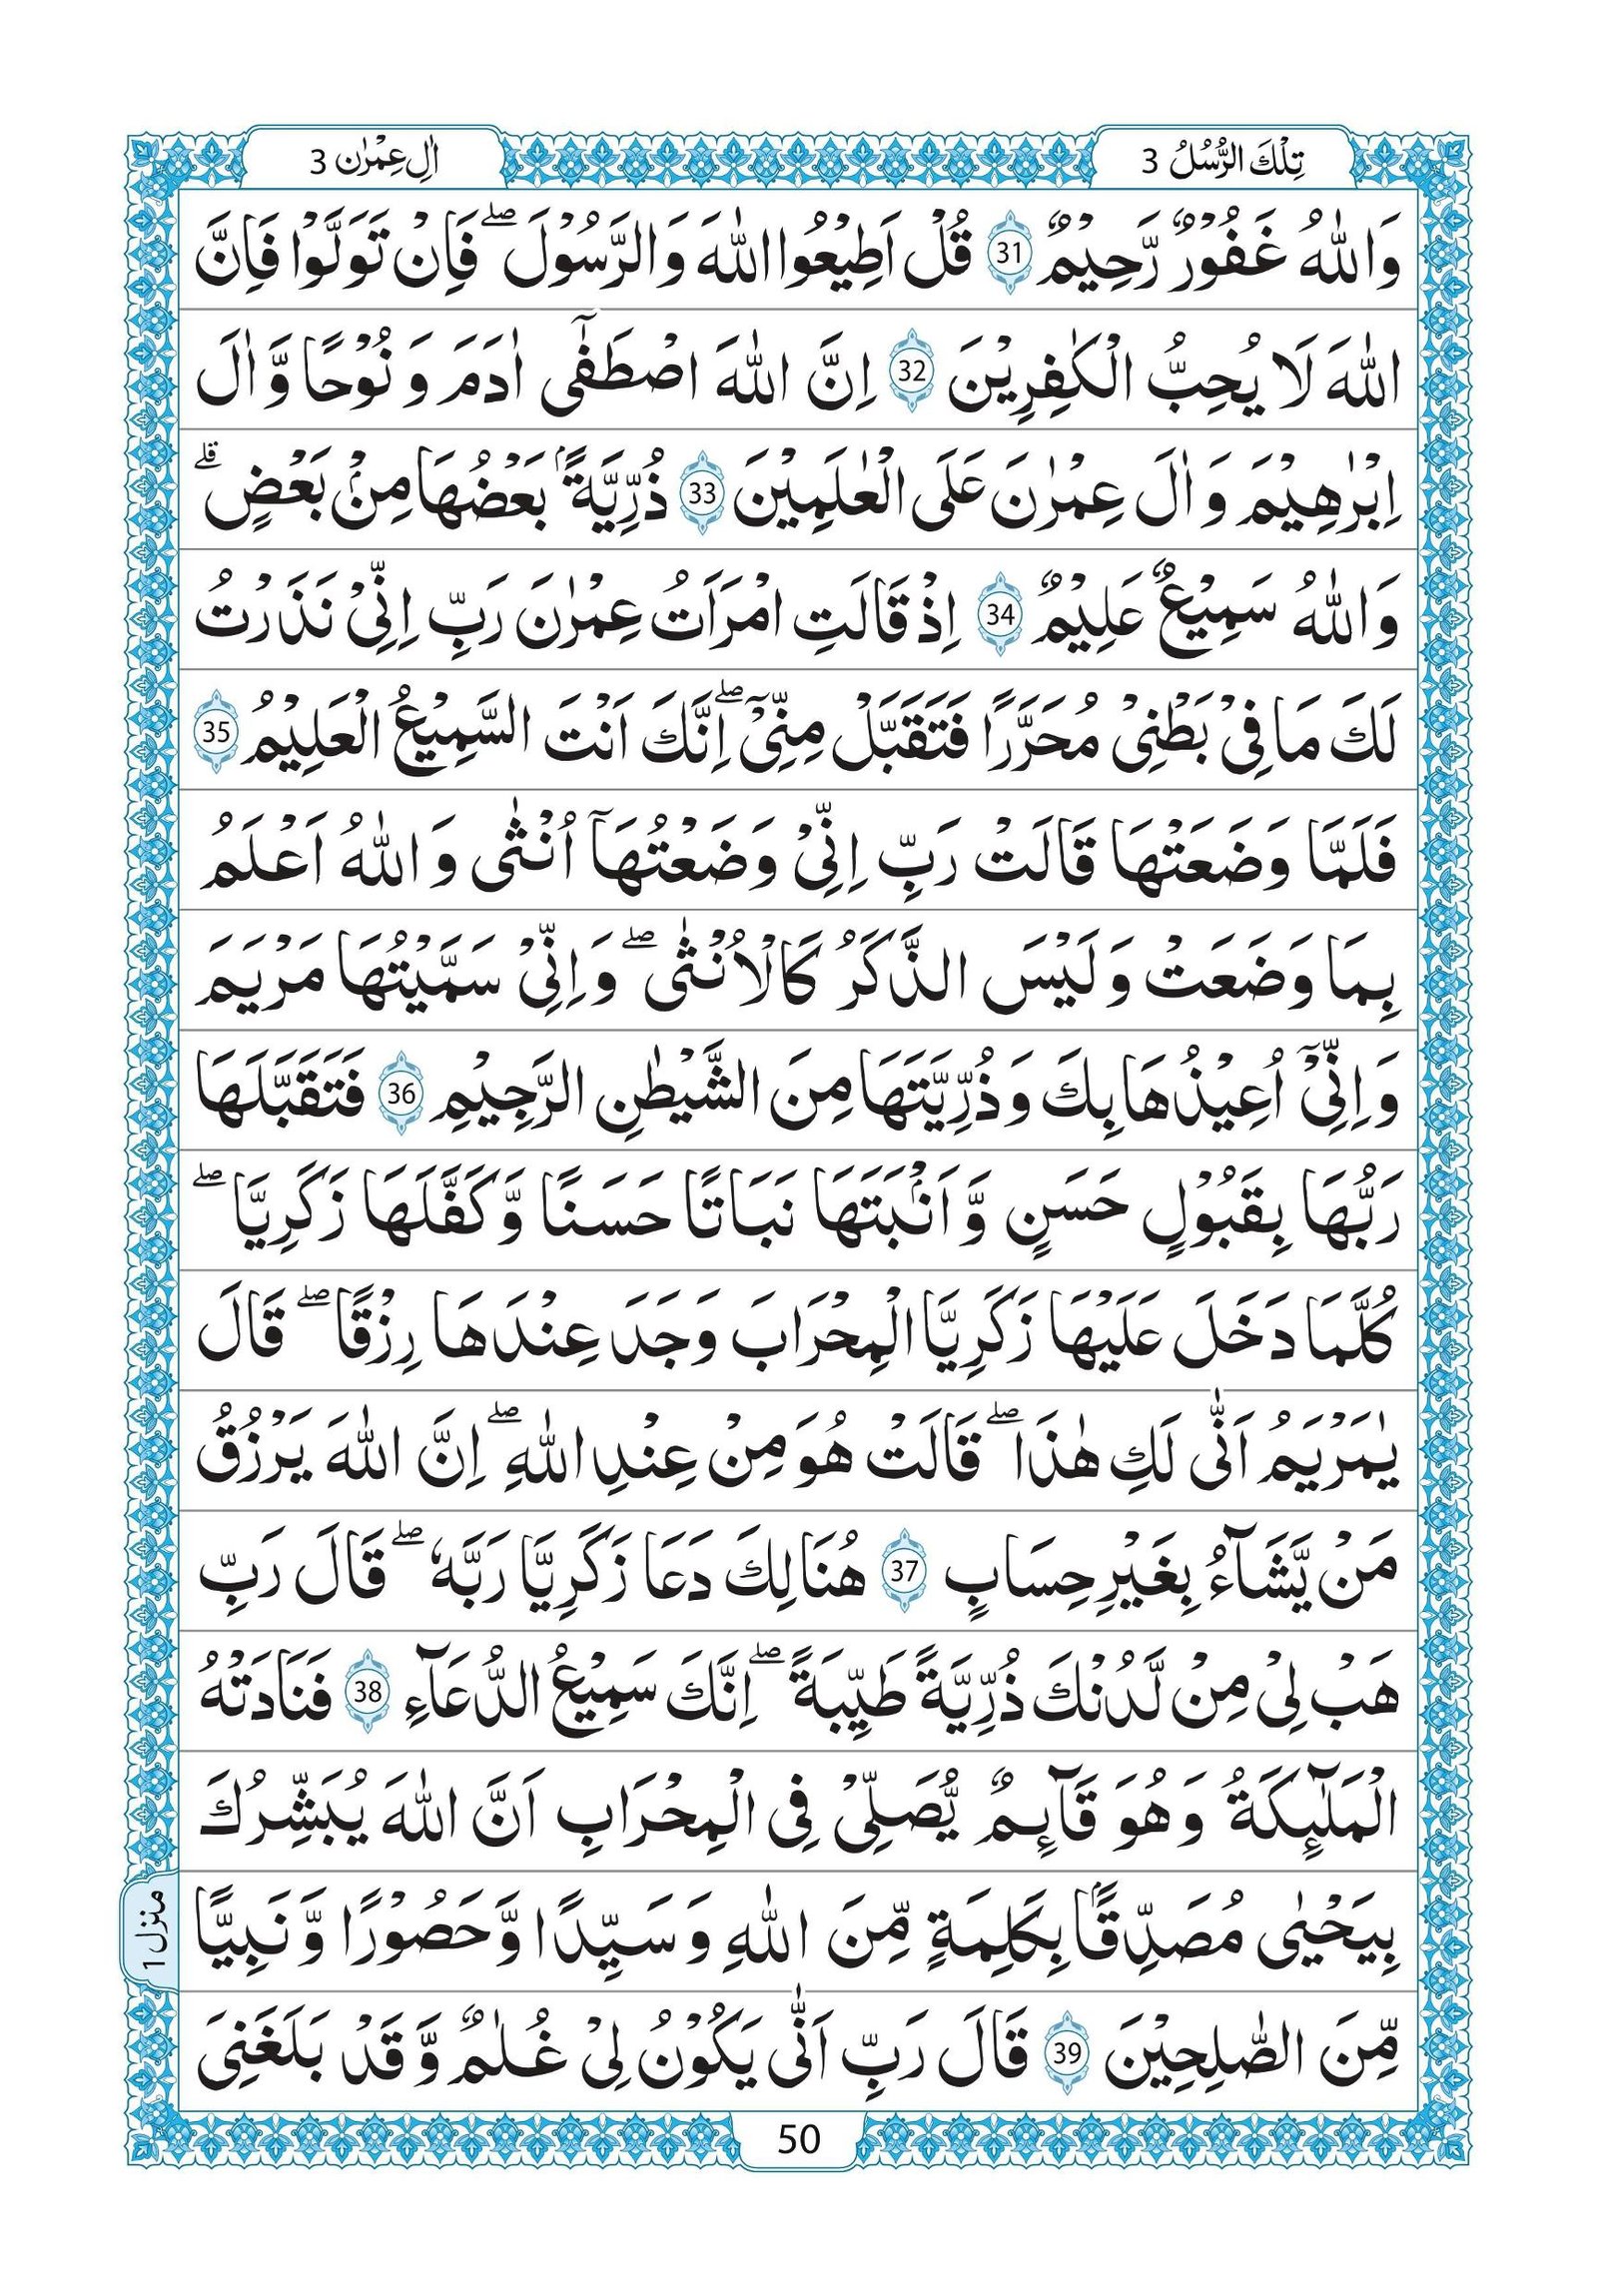 تِلْكَ الرُّسُلُ 3
اٰلِ عِمْرٰن 3
وَاللّٰهُ غَفُوْرٌ رَّحِيْمٌ 31 قُلْ اَطِيْعُوا اللّٰهَ وَ الرَّسُوْلَ ۖ فَاِنْ تَوَلَّوْا فَاِنَّ
اللّٰهَ لَا يُحِبُّ الْكٰفِرِيْنَ 32 اِنَّ اللّٰهَ اصْطَفٰٓى اٰدَمَ وَ نُوْحًا وَّ اٰلَ
اِبْرٰهِيْمَ وَ اٰلَ عِمْرٰنَ عَلَى الْعٰلَمِيْنَ 33 ذُرِّيَّةًۢ بَعْضُهَا مِنْۢ بَعْضٍ ۗ
وَاللّٰهُ سَمِيْعٌ عَلِيْمٌ 34 اِذْ قَالَتِ امْرَاَتُ عِمْرٰنَ رَبِّ اِنِّىْ نَذَرْتُ
لَكَ مَا فِىْ بَطْنِىْ مُحَرَّرًا فَتَقَبَّلْ مِنِّىْ ۖ اِنَّكَ اَنْتَ السَّمِيْعُ الْعَلِيْمُ 35
فَلَمَّا وَضَعَتْهَا قَالَتْ رَبِّ اِنِّىْ وَضَعْتُهَاۤ اُنْثٰى وَ اللّٰهُ اَعْلَمُ
بِمَا وَضَعَتْ وَ لَيْسَ الذَّكَرُ كَالْاُنْثٰى ۖ وَ اِنِّىْ سَمَّيْتُهَا مَرْيَمَ
وَ اِنِّىْۤ اُعِيْذُهَا بِكَ وَ ذُرِّيَّتَهَا مِنَ الشَّيْطٰنِ الرَّجِيْمِ 36 فَتَقَبَّلَهَا
رَبُّهَا بِقَبُوْلٍ حَسَنٍ وَّ اَنْۢبَتَهَا نَبَاتًا حَسَنًا وَّ كَفَّلَهَا زَكَرِيَّا ۖ
كُلَّمَا دَخَلَ عَلَيْهَا زَكَرِيَّا الْمِحْرَابَ وَجَدَ عِنْدَهَا رِزْقًا ۖ قَالَ
يٰمَرْيَمُ اَنّٰى لَكِ هٰذَا ۖ قَالَتْ هُوَ مِنْ عِنْدِ اللّٰهِ ۖ اِنَّ اللّٰهَ يَرْزُقُ
مَنْ يَّشَآءُ بِغَيْرِ حِسَابٍ 37 هُنَالِكَ دَعَا زَكَرِيَّا رَبَّهٗ ۖ قَالَ رَبِّ
هَبْ لِىْ مِنْ لَّدُنْكَ ذُرِّيَّةً طَيِّبَةً ۖ اِنَّكَ سَمِيْعُ الدُّعَآءِ 38 فَنَادَتْهُ
الْمَلٰٓئِكَةُ وَ هُوَ قَآئِمٌ يُّصَلِّىْ فِى الْمِحْرَابِ اَنَّ اللّٰهَ يُبَشِّرُكَ
بِيَحْيٰى مُصَدِّقًۢا بِكَلِمَةٍ مِّنَ اللّٰهِ وَ سَيِّدًا وَّ حَصُوْرًا وَّ نَبِيًّا
مِّنَ الصّٰلِحِيْنَ 39 قَالَ رَبِّ اَنّٰى يَكُوْنُ لِىْ غُلٰمٌ وَّ قَدْ بَلَغَنِىَ
منزل 1
50